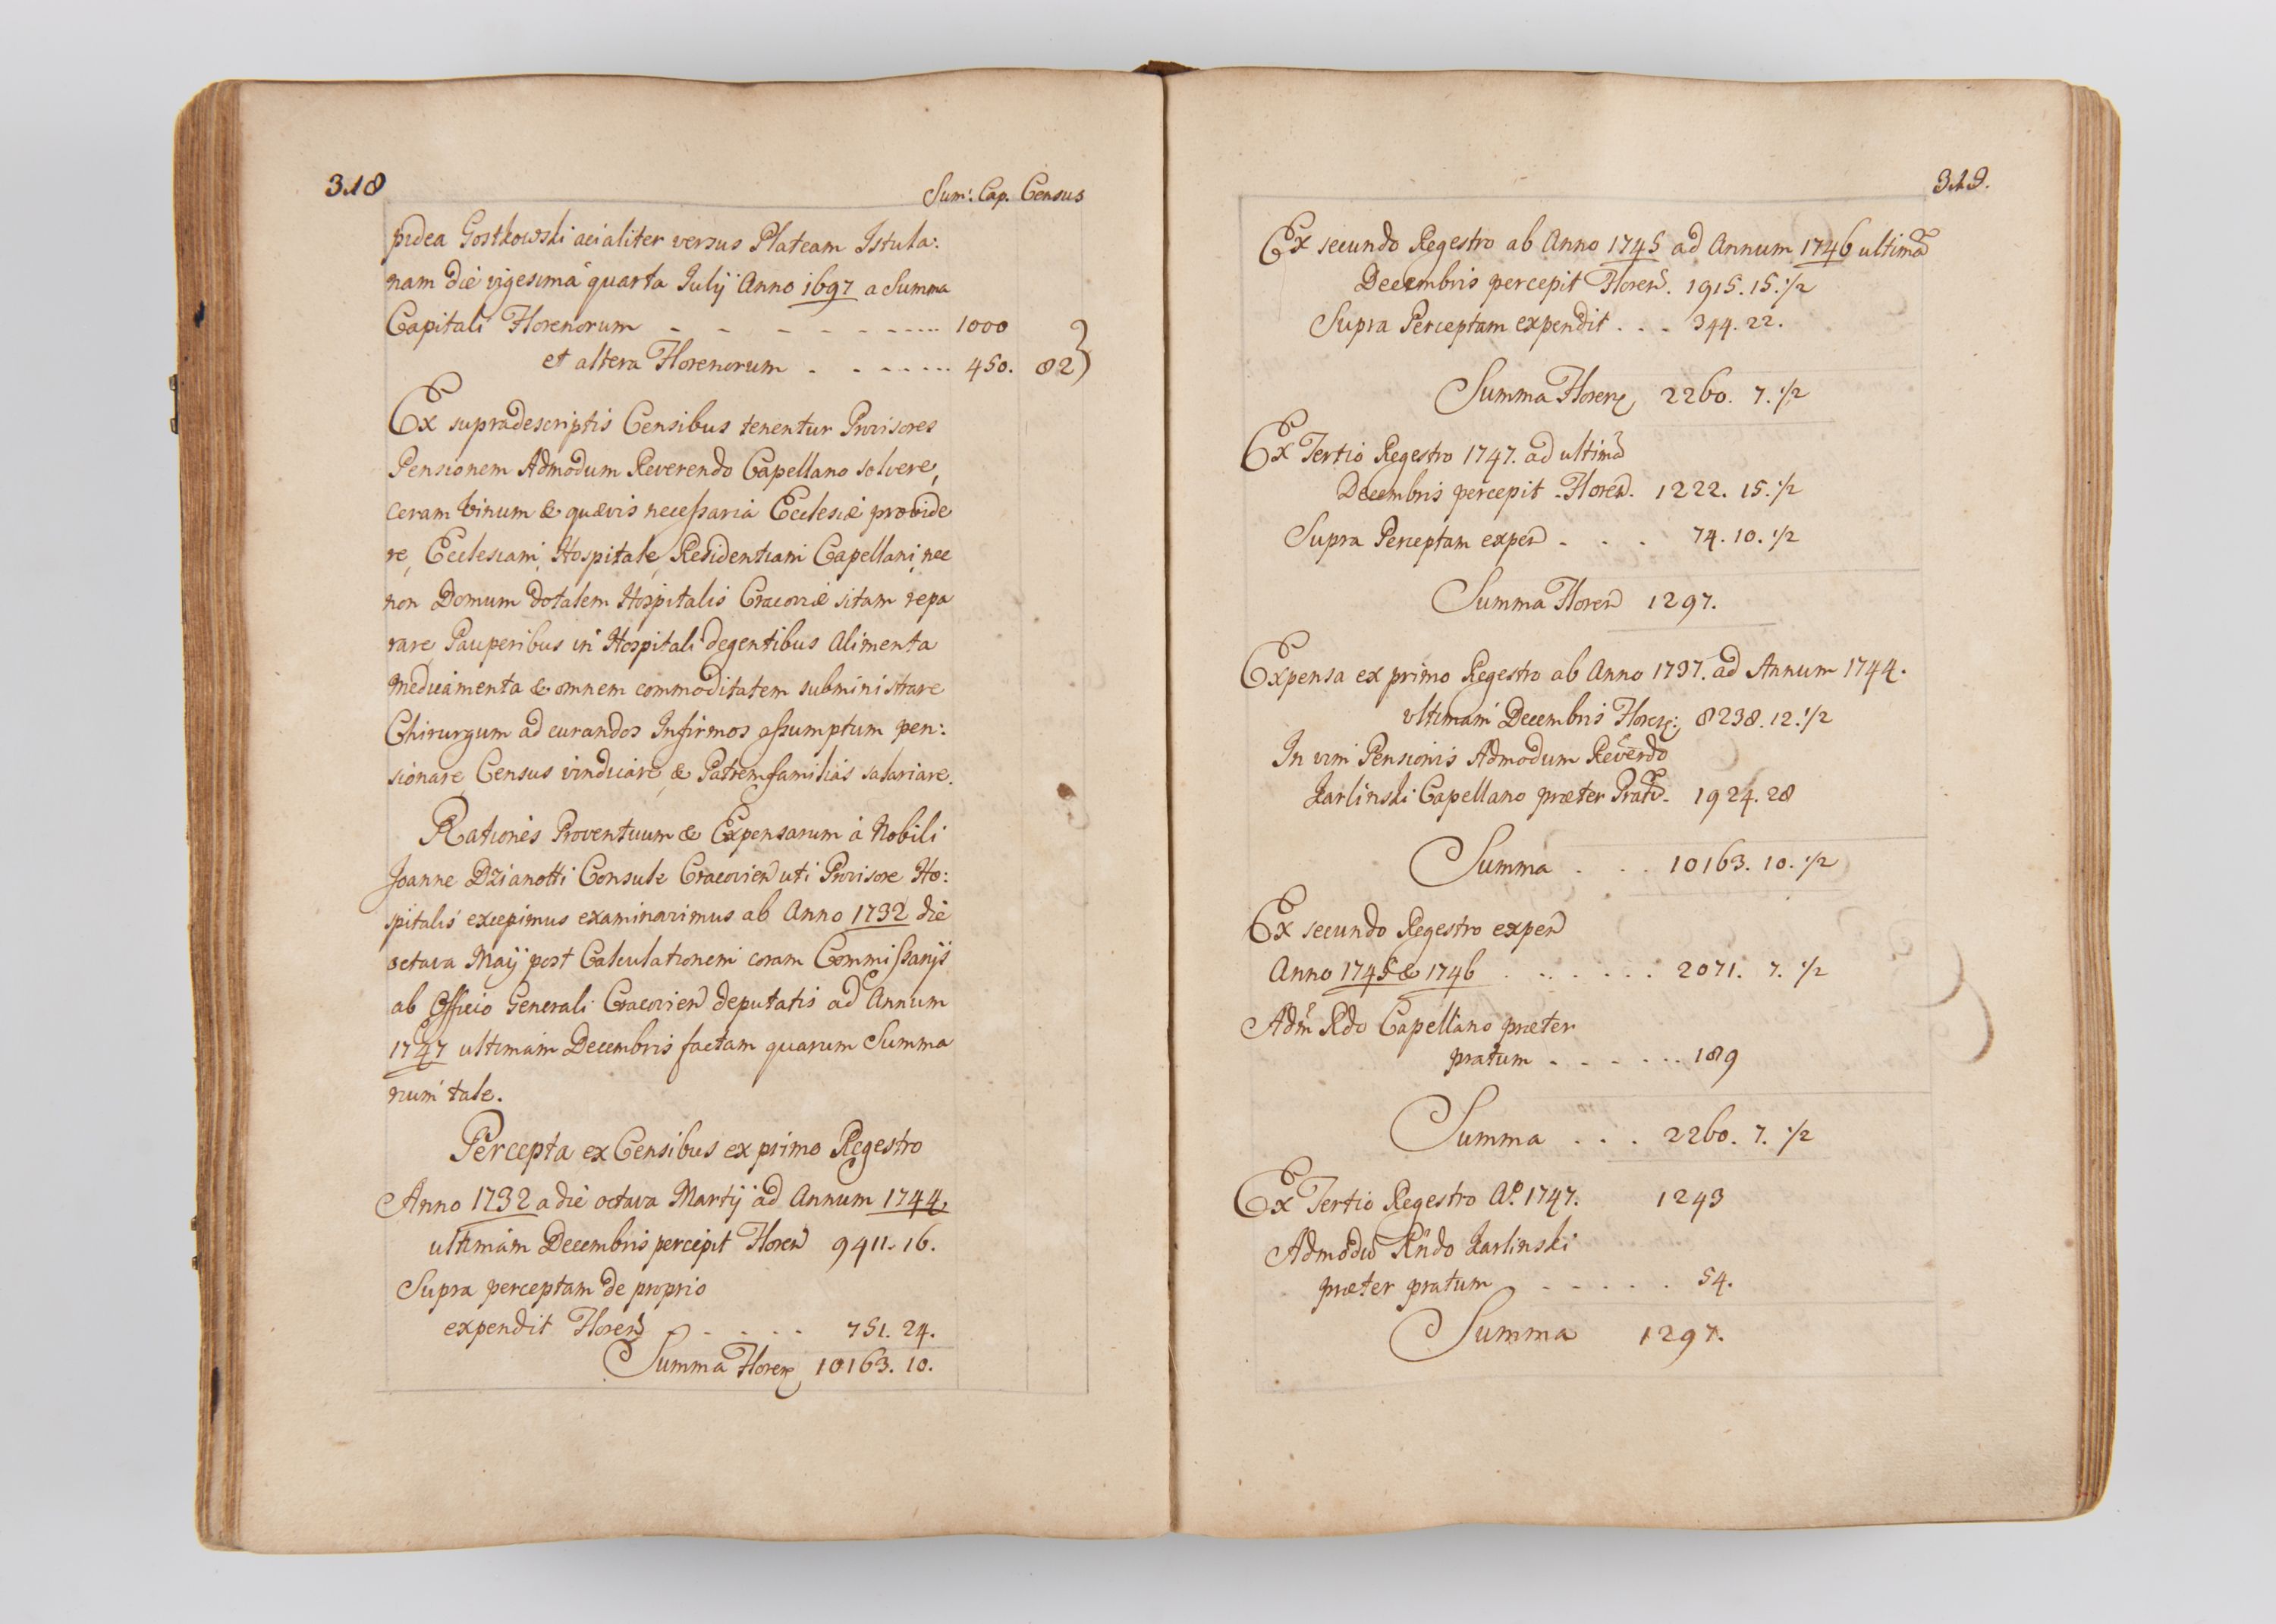 318
Sum: Cap. Census
pidea Gostkowski acialiter versus Plateam Istula:
nam die vigesima quarta Julij Anno 1697 a Summa
Capitali Florenorum - - - - - - - ..... 1000
et altera Florenorum . . - ..... 450. 82}
Ex supradescriptis Censibus tenentur Provisores
Pensionem Admodum Reverendo Capellano solvere,
ceram vinum & quævis necessaria Ecclesiæ provide
re, Ecclesiam, Hospitale, Residentiam Capellani, nec
non Domum dotalem Hospitalis Cracoviæ sitam repa
rare, Pauperibus in Hospitali degentibus Alimenta
Medicamenta & omnem commoditatem subministrare
Chirurgum ad curandos Infirmos assumptum pen:
sionare, Census vindicare, & Patremfamilias salariare.
Rationes Proventuum & Expensarum à Nobili
Joanne Dzianotti Consule Cracovien uti Provisore Ho:
spitalis excepimus examinavimus ab Anno 1732 die
octava Maij post Calculationem coram Commissarijs
ab Officio Generali Cracovien deputatis ad Annum
1747 ultimam Decembris factam quarum Summa
rium tale.
Percepta ex Censibus ex primo Regestro
Anno 1732 a die octava Martij ad Annum 1744
ultimam Decembris percepit Floren 9411. 16.
Supra perceptam de proprio
expendit Floren - - - - - 751. 24.
Summa Floren 10163. 10.
319.
Ex secundo Regestro ab Anno 1745 ad Annum 1746 ultimã
Decembris percepit Floren. 1915. 15. 1/2
Supra Perceptam expendit . . - 344. 22.
Summa Floren 2260. 7. 1/2
Ex Tertio Regestro 1747. ad ultimã
Decembris percepit Floren. 1222. 15. 1/2
Supra Perceptam expen - . . 74. 10. 1/2
Summa Floren 1297.
Expensa ex primo Regestro ab Anno 1737. ad Annum 1744.
ultimam Decembris Floren: 8238. 12. 1/2
In vim Pensionis Admodum Reverdo
Karlinski Capellano præter Pratũ - 1924. 28
Summa . . . 10163. 10. 1/2
Ex secundo Regestro expen
Anno 1745 & 1746 . . . . . . . 2071. 7. 1/2
Adm Rdo Capellano præter
pratum - - - - . . . 189
Summa . . . 2260. 7. 1/2
Ex Tertio Regestro Aº. 1747. 1243
Admodũ Rndo Karlinski
præter pratum - - - - - . 54.
Summa 1297.